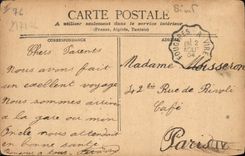 CARTE POSTALE
A utiliser seulement dans le service intérieur
(France, Algérie, Tunisie)
CORRESPONDANCE
Chers Parents
Nous avons fait
un excellent voyage
Nous sommes arrivés
à la gare ou mon
Oncle nous attendait
en bonne santé
Madame
42 bis Rue de Rivoli
Café
Paris IV